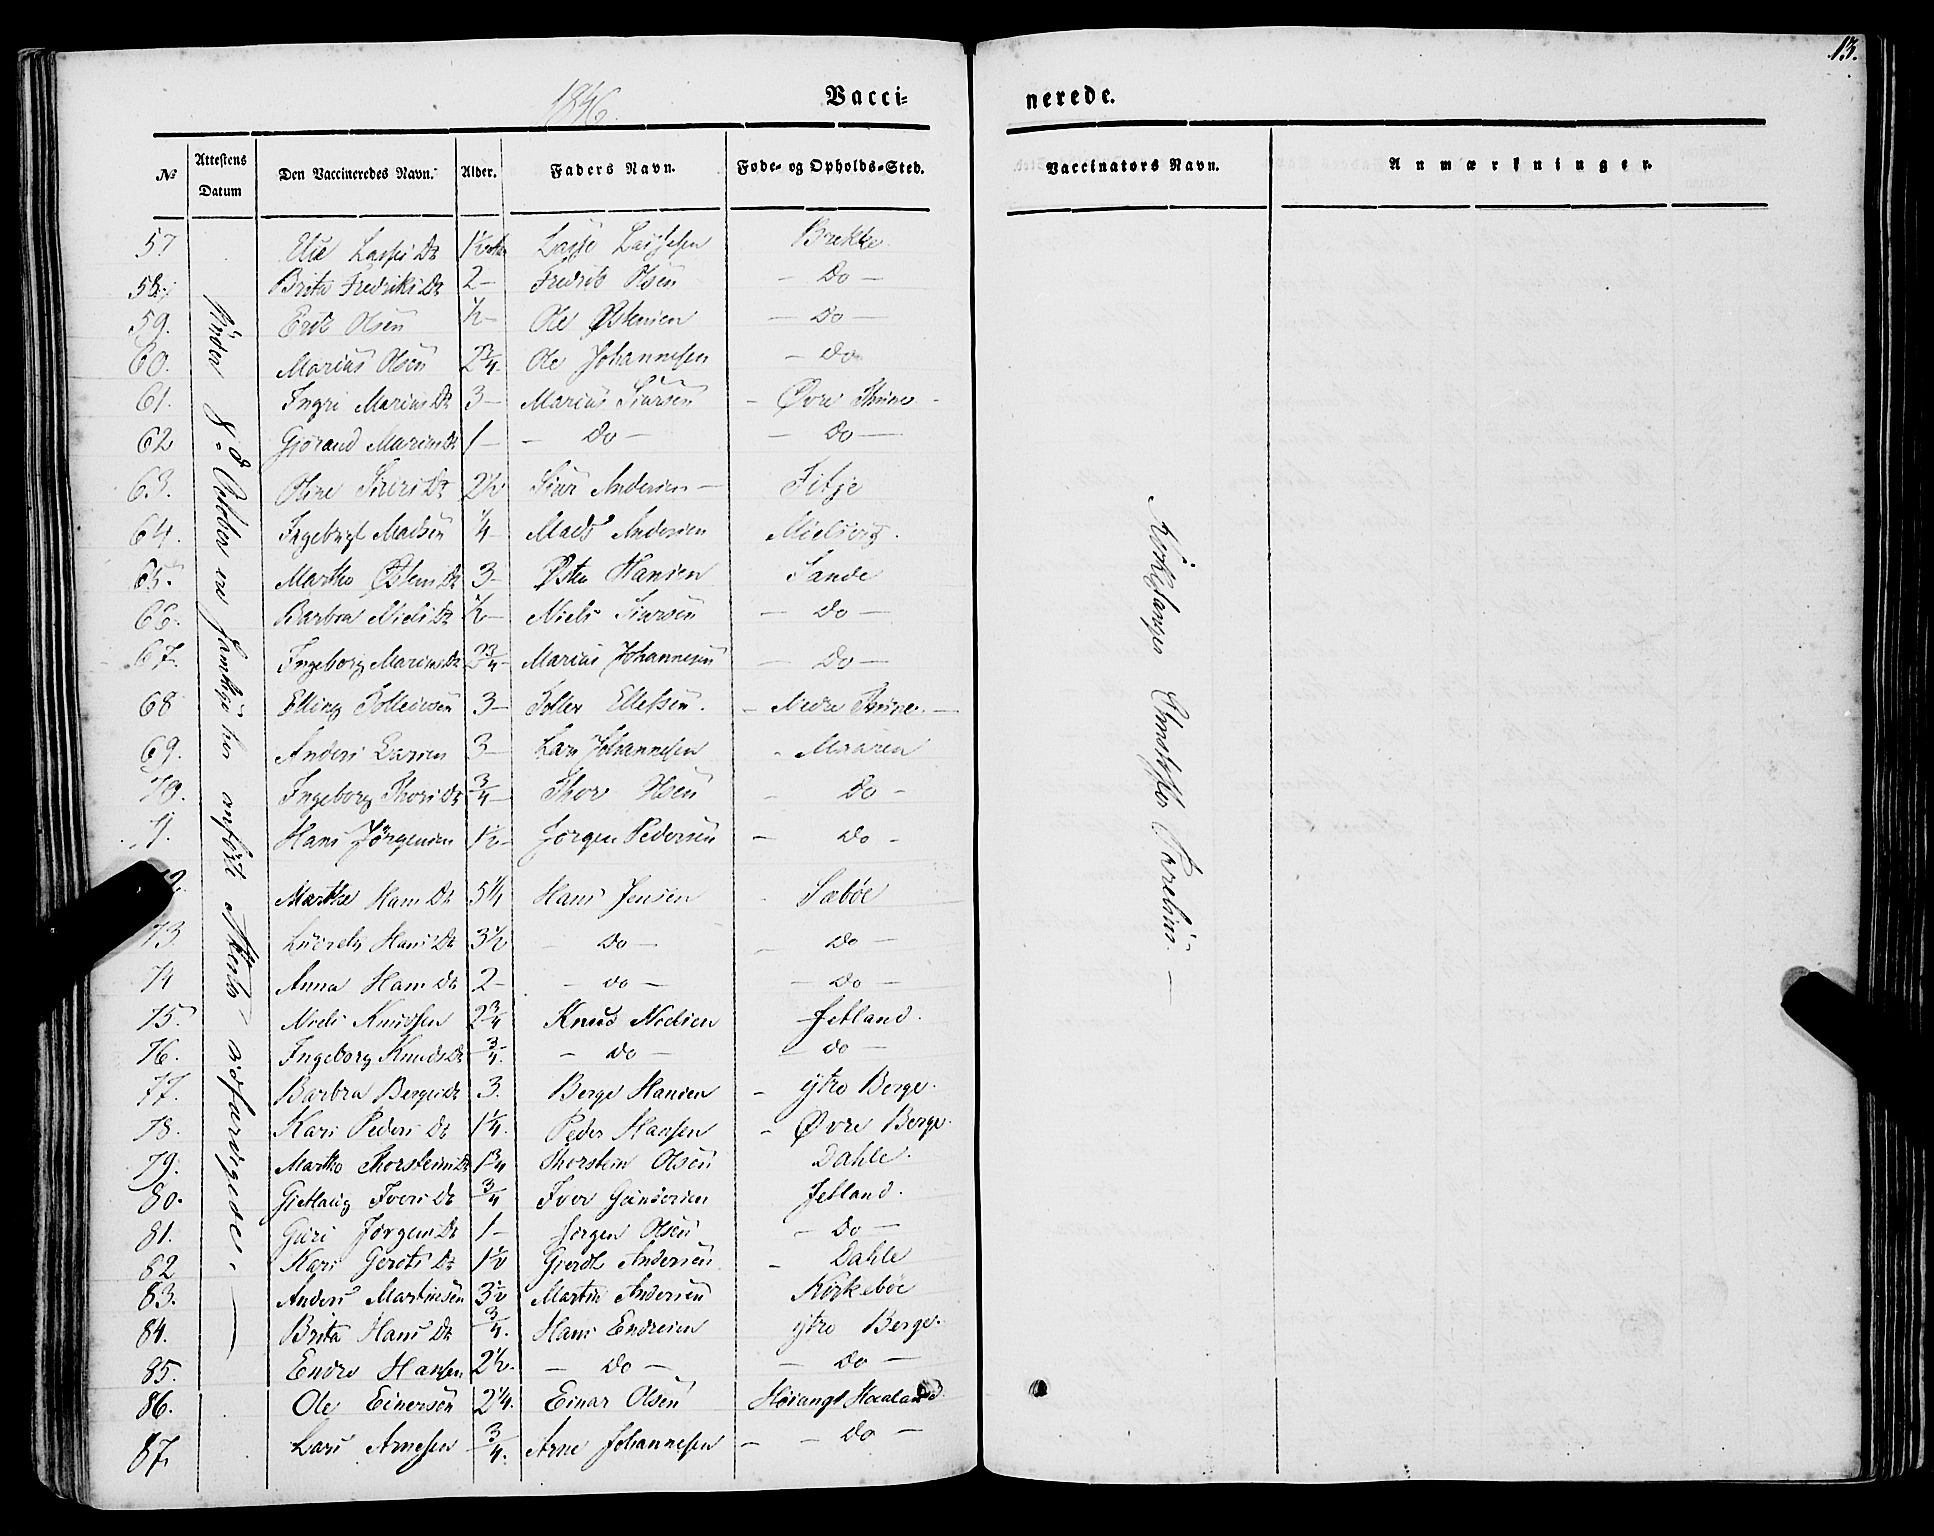 13.
1846.
Vacci= nerede.
No Attestens Datum Den Vaccineredes Navn. Alder. Faders Navn. Føde- og Opholds-Sted. Vaccinators Navn. Anmærkninger.
57 Lasses Dr 1½ Lasse Lassesen Brekke.
58. Brita Fredriks Dr 2 — Fredrik Olsen — Do —
59. Olsen ½ — Ole Østensen — Do —
60. Marius Olsen 2¾. Ole Johannesen — Do
61. Ingri Marius Dr 3 — Marius Siursen — Øvre —
62 Gjørand Marius Dr 1 — — Do — — Do —
63. Oline Siurs Dr 2½ Siur Andersen — Fitje
64. Madsen ¼ — Mads Andersen
65. Martha Østens Dr 3 — Østen Hansen Sande
66. Barbra Niels Dr ½ — Niels Siursen — Do —
67. Ingeborg Marius Dr 2¾ — Marius Johannesen — Do —
68 Elling 3 — Ellefsen. — Nedre —
69. Anders Larsen 3 — Lars Johannesen - Maaren
70. Ingeborg Thors Dr ¾ — Thor Olsen - Do -
71. Hans Jørgensen 1½ — Jørgen Pedersen — Do -
72. Marthe Hans Dr 5¼ Hans Jensen - Sæbøe
73. Hans Dr 3½ - Do — - Do —
74 Anna Hans Dr 2 — - do — — Do —
75. Niels Knudsen 2¾ Knud Nielsen Jetland.
76. Ingeborg Knuds Dr ¾. — do — — do —
77. Barbra Berges Dr 3. Berge Hansen — ytre Berge.
78. Kari Peders Dr 1¼. Peder Hansen — Øvre Berge.
79. Martha Thorsteins Dr 1¾ Thorstein Olsen Dahle.
80. Ivers Dr ¾ Iver Jetland.
81. Guri Jørgens Dr 1 — Jørgen Olsen — Do —
82 Kari Dr 1½ Andersen. - Dahle
83. Anders Martinsen 3½ Martin Andersen Kirkebøe
84. Brita Hans Dr ¾. Hans Endresen ytre Berge.
85. Endre Hansen 2½. — Do — — Do —
86. Ole Einersen 2¼. Einar Olsen Haaland.
87. Lars Arnesen ¾. Arne Johannesen — — Do —
Under 8de October ere samtlige her anførte Attester udfærdigede. —
Kirkesanger